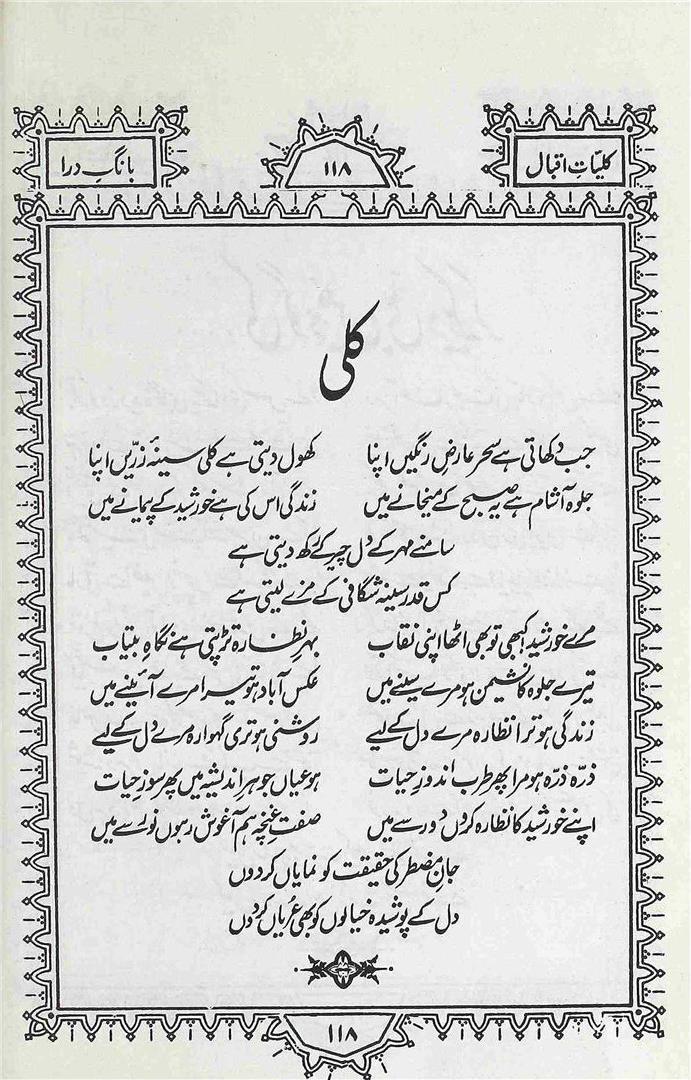 کلیاتِ اقبال ۱۱۸ بانگِ درا
کلی
جب دکھاتی ہے سحر عارضِ رنگیں اپنا کھول دیتی ہے کلی سینۂ زرّیں اپنا
جلوہ آشام ہے یہ صبح کے میخانے میں زندگی اس کی ہے خورشید کے پیمانے میں
سامنے مہر کے دل چیر کے رکھ دیتی ہے
کس قدر سینہ شگافی کے مزے لیتی ہے
مرے خورشید! کبھی تو بھی اٹھا اپنی نقاب بہرِ نظّارہ تڑپتی ہے نگاہِ بیتاب
تیرے جلوہ کا نشیمن ہو مرے سینے میں عکس آباد ہو تیرا مرے آئینے میں
زندگی ہو ترا نظّارہ مرے دل کے لیے روشنی ہو تری گہوارہ مرے دل کے لیے
ذرّہ ذرّہ ہو مرا پھر طرب اندوزِ حیات ہو عیاں جوہرِ اندیشہ میں پھر سوزِ حیات
اپنے خورشید کا نظّارہ کروں دور سے میں صفتِ غنچہ ہم آغوش رہوں نور سے میں
جانِ مضطر کی حقیقت کو نمایاں کر دوں
دل کے پوشیدہ خیالوں کو بھی عُریاں کر دوں
۱۱۸